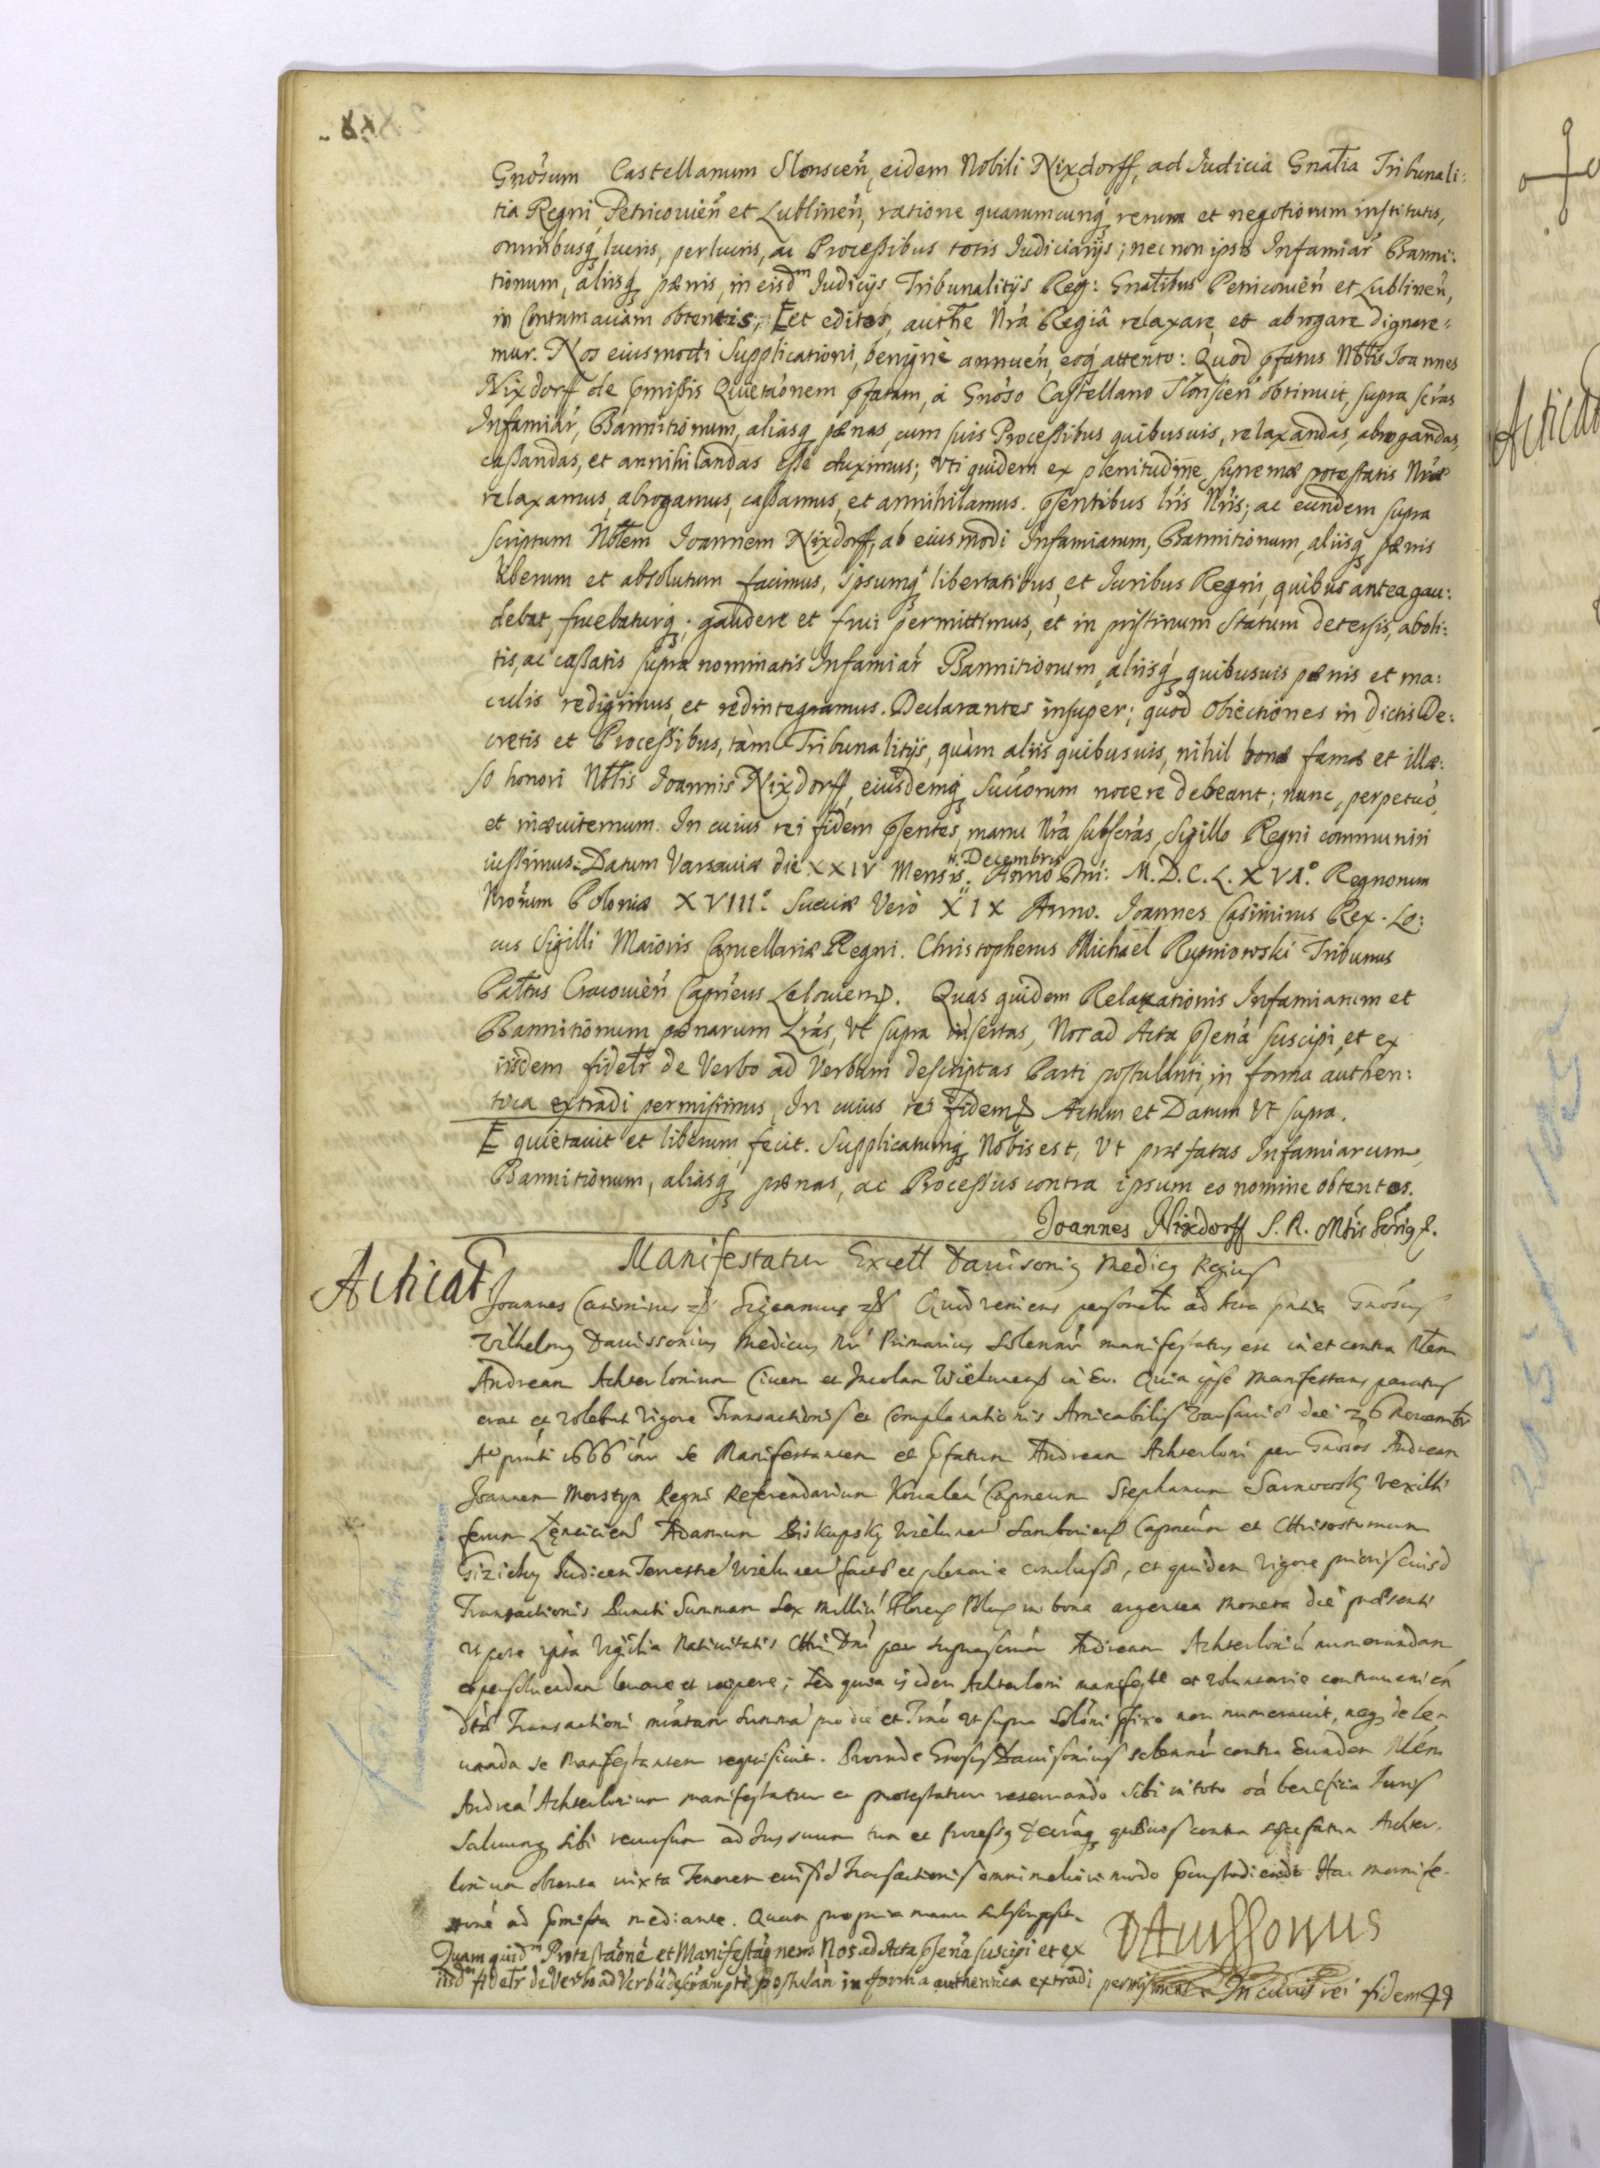 Gnosum Castellanum Slonscen, eidem Nobili Nixdorff, ad Judicia Gnalia Tribunali:
tia Regni Petricouien et Lublinen, ratione quarumcunq rerum et negotiorum institutis,
omnibusq lucris, perlucris, ac Processibus totis Iudiciarijs; nec non ipsis Infamiar Banni:
tionum, aliisq pænis, in eisdm Iudicijs Tribunalitijs Reg: Gnalibus Petricouien et Lublinen,
in Contumaciam obtentis, E et editos, authe Nra Regiâ relaxare et abrogare dignare:
mur. Nos eiusmodi Supplicationi, benigne annuen, eoq attento: Quod pfatus Nblis Joannes
Nixdorff de pmissis Quietaonem pfatam, á Gnoso Castellano Slonscen obtinuit, supra scras
Infamiar, Bannitionum, aliasq pænas, cum suis Processibus quibusuis, relaxandas, abrogandas,
cassandas, et annihilandas esse duximus; Vti quidem ex plenitudine supremæ potestatis Nræ
relaxamus, abrogamus, cassamus, et annihilamus. psentibus lris Nris; ac eundem supra
scriptum Nblem Joannem Nixdorff, ab eiusmodi Infamiarum, Bannitionum, aliisq pænis
liberum et absolutum facimus, ipsumq libertatibus, et Juribus Regni, quibus antea gau:
debat, fruebaturq; gaudere et frui permittimus, et in pristinum Statum detersis, aboli:
tis, ac cassatis supra nominatis Infamiar Bannitionum, aliisq quibusuis pænis et ma:
culis redigimus, et redintegramus. Declarantes insuper; quod Obiectiones in dictis De:
cretis et Processibus, tàm Tribunalitijs, quàm aliis quibusuis, nihil bonæ famæ et illæ:
so honori Nblis Joannis Nixdorff, eiusdemq Succorum nocere debeant; nunc, perpetuò,
et in æuiternum. In cuius rei fidem psentes, manu Nra subscras, Sigillo Regni communiri
iussimus. Datum Varsauiæ die XXIV Mensis Decembris Anno Dni: M.D.C.L.XVI.o Regnorum
Nrorum Poloniæ XVIII.o Sueciæ Verò XIX Anno. Joannes Casimirus Rex. Lo:
cus Sigilli Maioris Cancellariæ Regni. Christopherus Michael Rupniowski Tribunus
Palatus Cracouien Capneus Lelouien. Quas quidem Relaxationis Infamiarum et
Bannitionum pænarum Lras, Vt supra insertas, Nos ad Acta psena suscipi, et ex
iisdem fidelr de Verbo ad Verbum descriptas Parti postulanti in forma authen:
tica extradi permisimus, In cuius rei fidem Actum et Datum Vt supra.
E quietauit et liberum fecit. Supplicatumq Nobis est, Vt præfatas Infamiarum,
Bannitionum, aliasq pænas, ac Processus contra ipsum eo nomine obtentos.
Joannes Nixdorff S. R. Mtis
Manifestatur Excell Dauisonius Medicus Regius
Acticat
Joannes Casimirus Significamus Quia veniens personalr ad Acta pntia Gnosus
Wilhelmus Dauissonius Medicus Nr Primarius Solennr manifestatus est in et contra Nblem
Andream Achterlonium Ciuem et Incolam Wielunen in Eo. Quia ipse Manifestans paratus
erat et volebat Vigore Transactionis et Complanationis Amicabilis Varsauiæ die 26 Novembr
Ao pnti 1666 intr se Manifestantem et pfatum Andream Achterloni per Gnosos Andream
Joannem Morstyn Regni Referendarium Koualen Capneum Stephanum Sarnowsky Vexilli
ferum Lęnciciens Adamum Biskupsky Wielunen Samborien Capneum et Chrisostomum
Gizicky Iudicem Terrestre Wielunen factæ et plenarie conclusæ, et quidem Vigore prioris eiusd
Transactionis Puncti Summam Sex Milliu Floren Polon in bona argentea moneta die præsenti
Vt pote ipsa Vigilia Natiuitatis Chri Dni per suprascriptum Andream Achterloniu numerandam
et persoluendam leuare et recipere; sed quia isdem Achterloni manifeste et voluntarie contraueniendo
dtæ Transactioni Summa pro die et Trno Vt supra Soloni pfixo non numerauit, neq de le-
uanda se Manifestantem requisiuit. Proinde Gnosus Dauisonius solennr contra Eundem Nblem
Andrea Achterlonium manifestatur et protestatur reseruando sibi in toto oia beneficia Iuris
Saluumq sibi recursum ad Jus suum tum et Processus Decretaq quæuis contra Achter-
lonium obtenta iuxta Tenorem eiusd Transactionis omni meliori modo Hac manife-
stone ad pmissa mediante. Quam propria manu subscripsit.
DAuissonus
Quam quidm Protestaone et Manifestaonem Nos ad Acta psena suscipi et ex
iisdm fidelr de Verbo ad Verbu descram pti postulan in forma authentica extradi permisimus. In cuius rei fidem